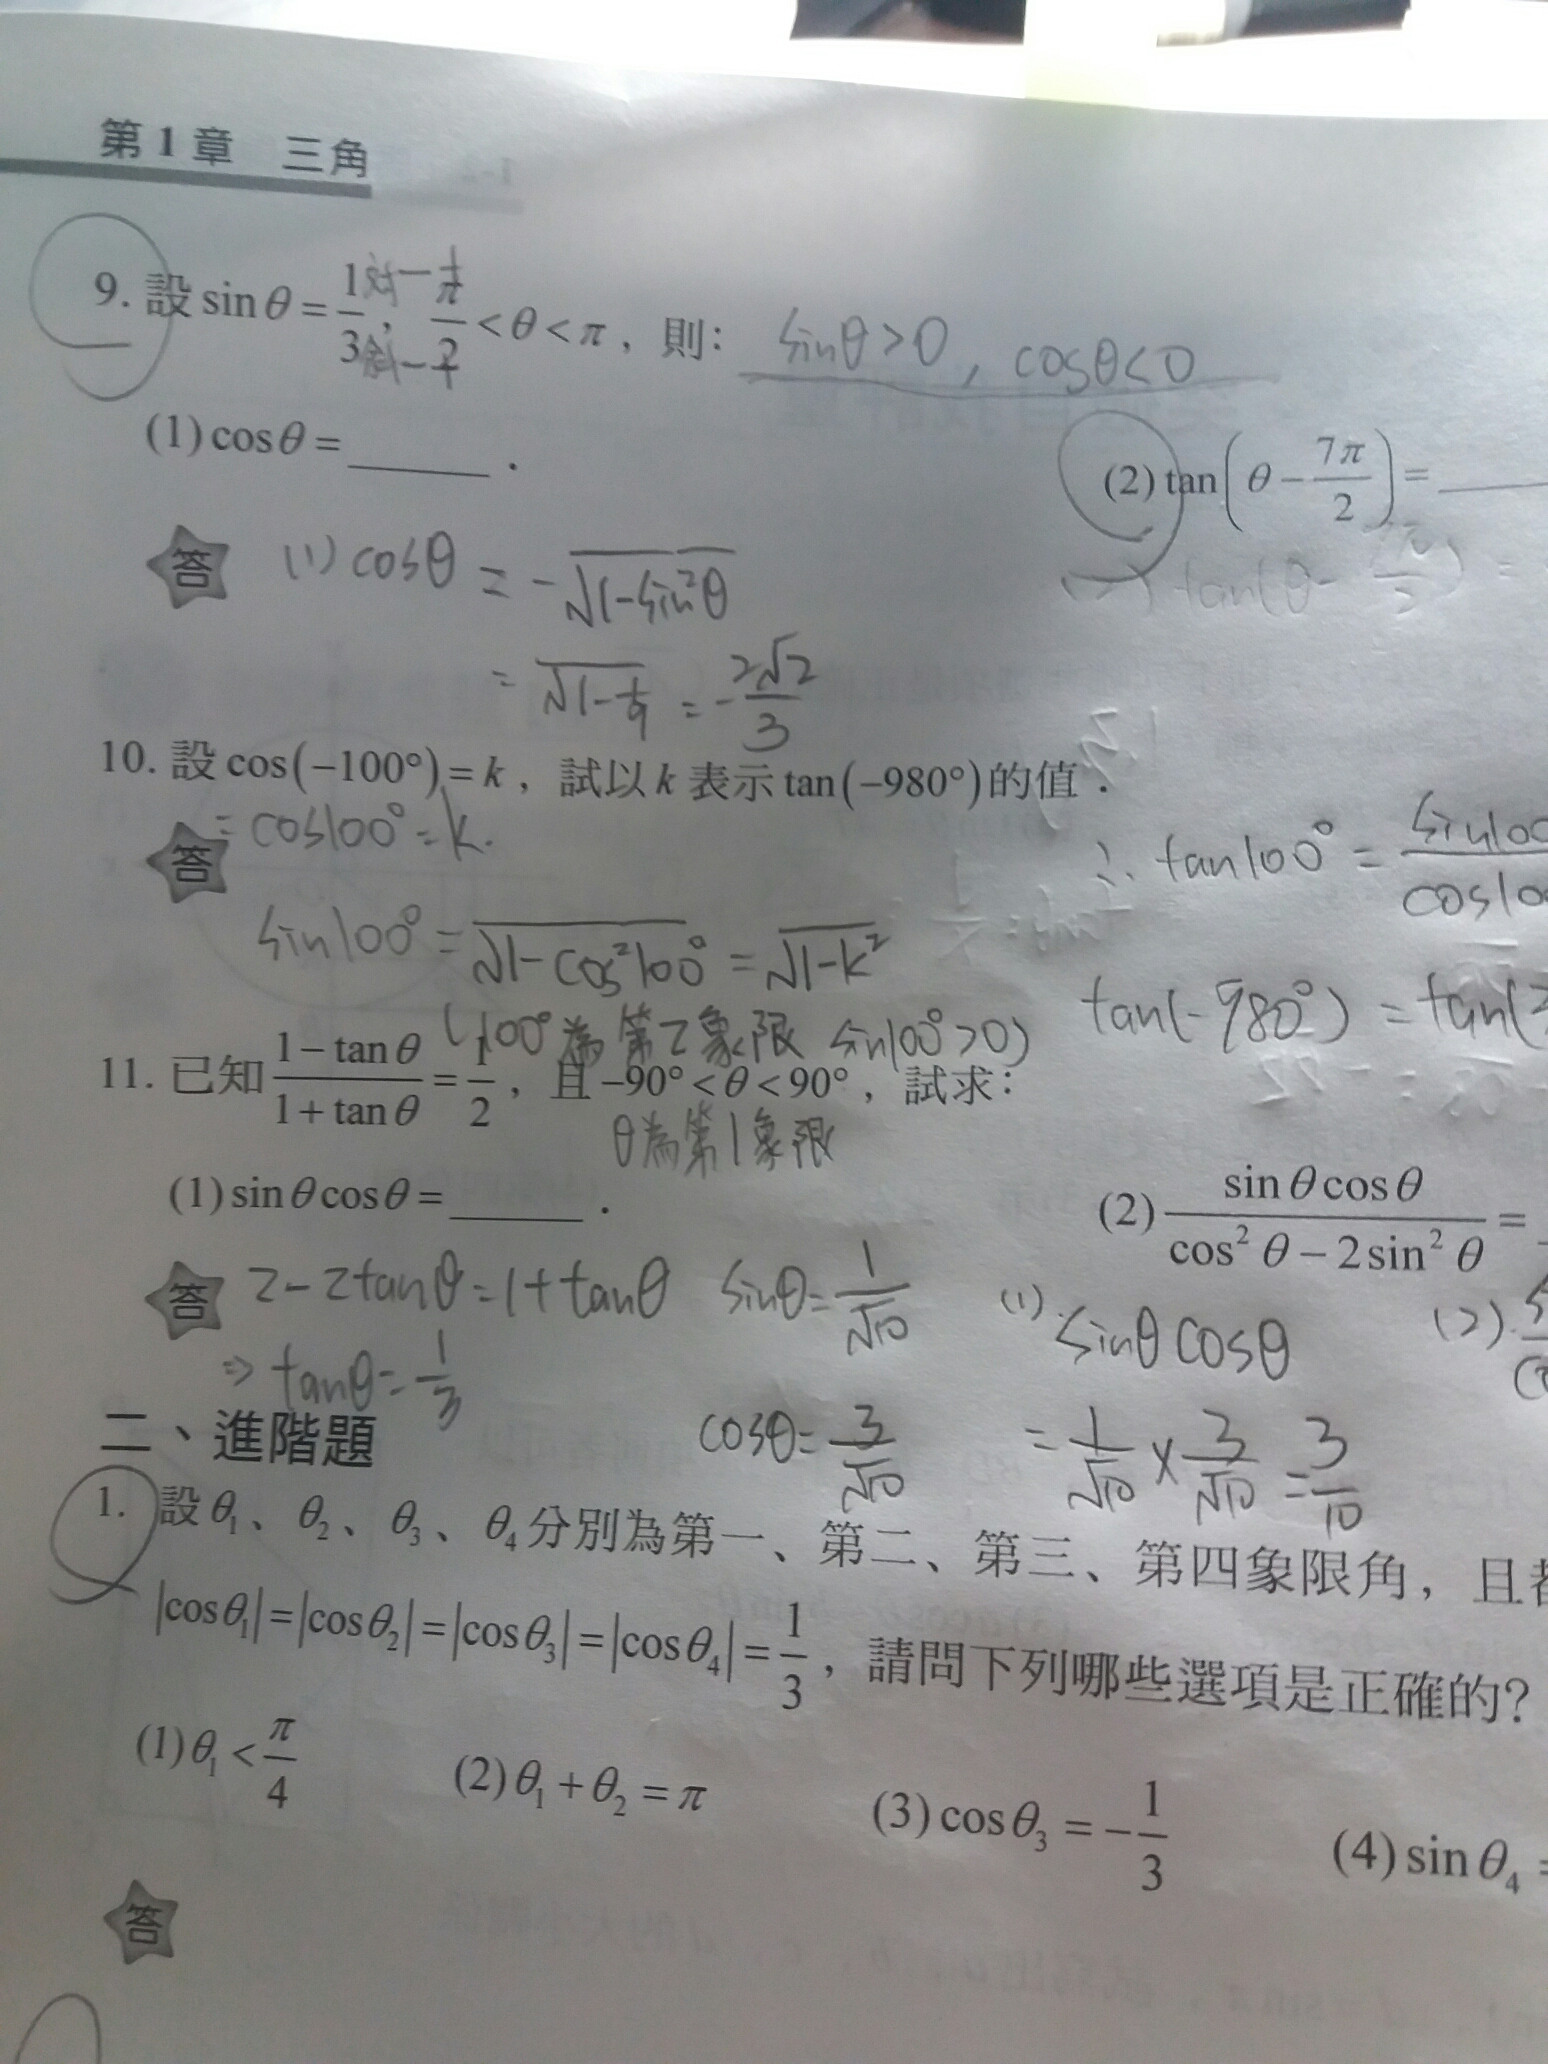 第1章 三角
9. 設 sinθ = 1/3, π/2 < θ < π, 則: sinθ>0, cosθ<0
(1) cosθ = ______. (2) tan(θ − 7π/2) = ______
答 (1) cosθ = −√(1−sin²θ)
= √(1−1/9) = −2√2/3
10. 設 cos(−100°) = k, 試以 k 表示 tan(−980°) 的值.
= cos100° = k.
答 ∴ tan100° =
sin100° = √(1−cos²100°) = √(1−k²)
(100°為第2象限 sin100°>0) tan(−980°) = tan(
11. 已知 (1−tanθ)/(1+tanθ) = 1/2, 且 −90° < θ < 90°, 試求:
θ為第1象限
(1) sinθcosθ = ______. (2) sinθcosθ/(cos²θ − 2sin²θ) =
答 2−2tanθ = 1+tanθ sinθ = 1/√10 (1). sinθcosθ (2).
⇒ tanθ = 1/3 cosθ = 3/√10 = 1/√10 × 3/√10 = 3/10
二、進階題
1. 設 θ₁、θ₂、θ₃、θ₄ 分別為第一、第二、第三、第四象限角, 且
|cosθ₁| = |cosθ₂| = |cosθ₃| = |cosθ₄| = 1/3, 請問下列哪些選項是正確的?
(1) θ₁ < π/4 (2) θ₁ + θ₂ = π (3) cosθ₃ = −1/3 (4) sinθ₄ =
答